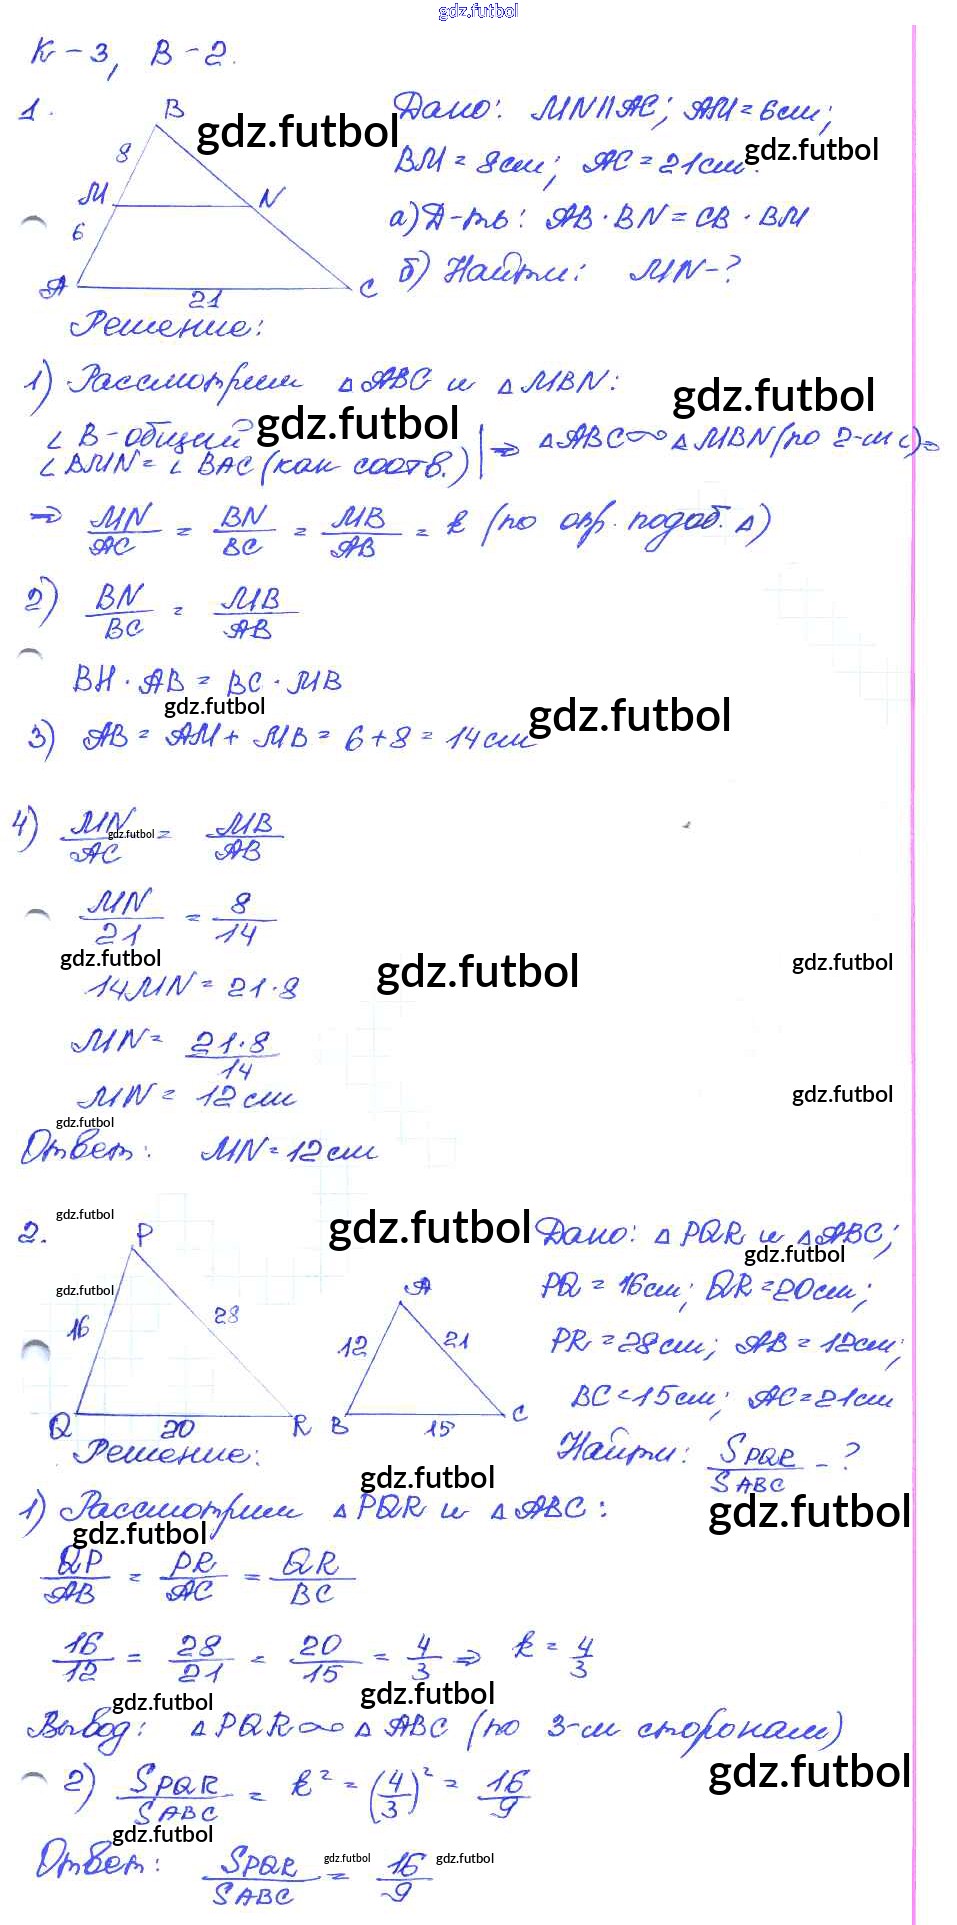 gdz.futbol
К-3, В-2.
1.
B
8
M
N
6
A
21
C
gdz.futbol
Дано: MN||AC; AM=6см;
BM=8см; AC=21см.
gdz.futbol
а) Д-ть: AB·BN=CB·BM
б) Найти: MN-?
Решение:
1) Рассмотрим △ABC и △MBN:
gdz.futbol
∠B-общий
gdz.futbol
∠BMN=∠BAC (как соотв.) | ⇒ △ABC∾△MBN (по 2-м ∠)⇒
⇒ MN/AC = BN/BC = MB/AB = k (по опр. подоб. △)
2) BN/BC = MB/AB
BH·AB = BC·MB
gdz.futbol
gdz.futbol
3) AB = AM + MB = 6+8 = 14см
4) MN/AC = MB/AB
gdz.futbol
MN/21 = 8/14
gdz.futbol
gdz.futbol
gdz.futbol
14MN = 21·8
MN = 21·8/14
MN = 12см
gdz.futbol
gdz.futbol
Ответ: MN=12см
2.
gdz.futbol
gdz.futbol
P
16
28
Q
20
R
gdz.futbol
A
12
21
B
15
C
Дано: △PQR и △ABC;
gdz.futbol
PQ = 16см; QR=20см;
PR=28см; AB=12см;
BC=15см; AC=21см
Найти: SPQR/SABC - ?
Решение:
gdz.futbol
gdz.futbol
1) Рассмотрим △PQR и △ABC:
gdz.futbol
QP/AB = PR/AC = QR/BC
16/12 = 28/21 = 20/15 = 4/3 ⇒ k = 4/3
gdz.futbol
gdz.futbol
Вывод: △PQR∾△ABC (по 3-м сторонам)
gdz.futbol
2) SPQR/SABC = k² = (4/3)² = 16/9
gdz.futbol
Ответ: SPQR/SABC = 16/9
gdz.futbol
gdz.futbol